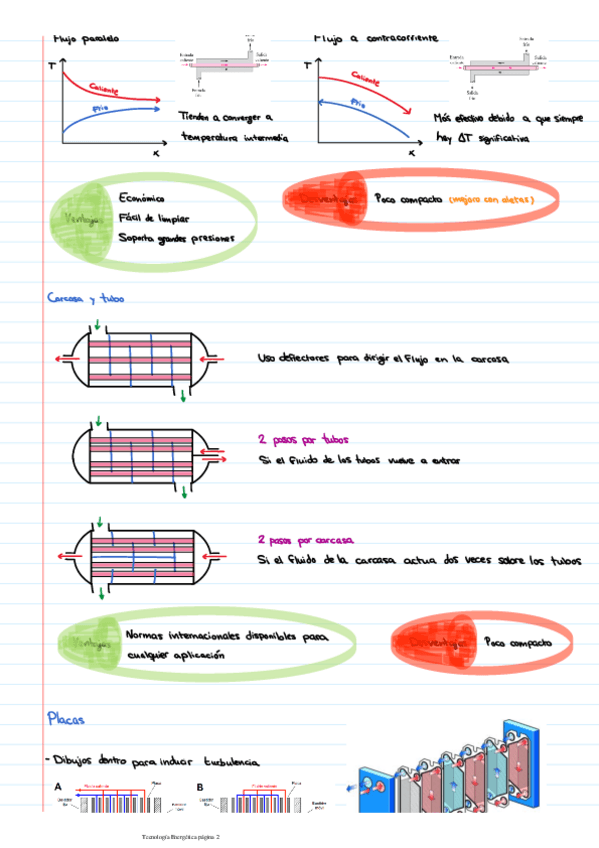 Flujo paralelo
Flujo a contracorriente
T
Caliente
Frío
x
Entrada caliente
Salida caliente
Entrada fría
Tienden a converger a
temperatura intermedia
T
Caliente
Frío
x
Entrada fría
Entrada caliente
Salida caliente
Salida fría
Más efectivo debido a que siempre
hay ΔT significativa
Ventajas
Económico
Fácil de limpiar
Soporta grandes presiones
Desventajas
Poco compacto (mejora con aletas)
Carcasa y tubo
Uso deflectores para dirigir el flujo en la carcasa
2 pasos por tubos
Si el fluido de los tubos vuelve a entrar
2 pasos por carcasa
Si el fluido de la carcasa actua dos veces sobre los tubos
Ventajas
Normas internacionales disponibles para
cualquier aplicación
Desventajas
Poco compacto
Placas
- Dibujos dentro para inducir turbulencia
A
Placa
B
Placa
Tecnología Energética página 2